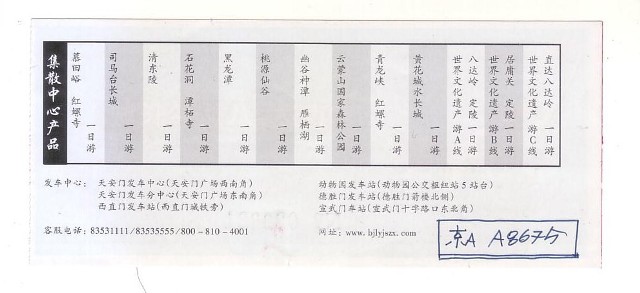 集散中心产品
慕田峪 红螺寺 一日游
司马台长城 一日游
清东陵 一日游
石花洞 潭柘寺 一日游
黑龙潭 一日游
桃源仙谷 一日游
幽谷神潭 雁栖湖 一日游
云蒙山国家森林公园 一日游
青龙峡 红螺寺 一日游
黄花城水长城 一日游
八达岭 定陵 一日游
世界文化遗产 游A线
居庸关 定陵 一日游
世界文化遗产 游B线
直达八达岭 一日游
世界文化遗产 游C线
发车中心: 天安门发车中心(天安门广场西南角)
天安门发车分中心(天安门广场东南角)
西直门发车站(西直门城铁旁)
动物园发车站(动物园公交枢纽站5站台)
德胜门发车站(德胜门箭楼北侧)
宣武门车站(宣武门十字路口东北角)
客服电话: 83531111/83535555/800-810-4001
网址: www.bjlyjszx.com
京A A8675